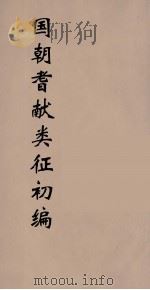 国朝耆献类征初编
mtoou.info
mtoou.info